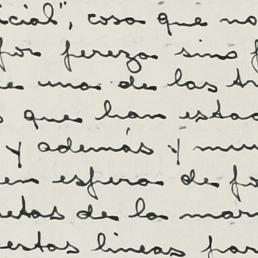 icial", cosa que no
por pereza sino f
e una de las tr
s que han estad
y además y muy
en espera de fo
etas de la mar
ertas lineas par